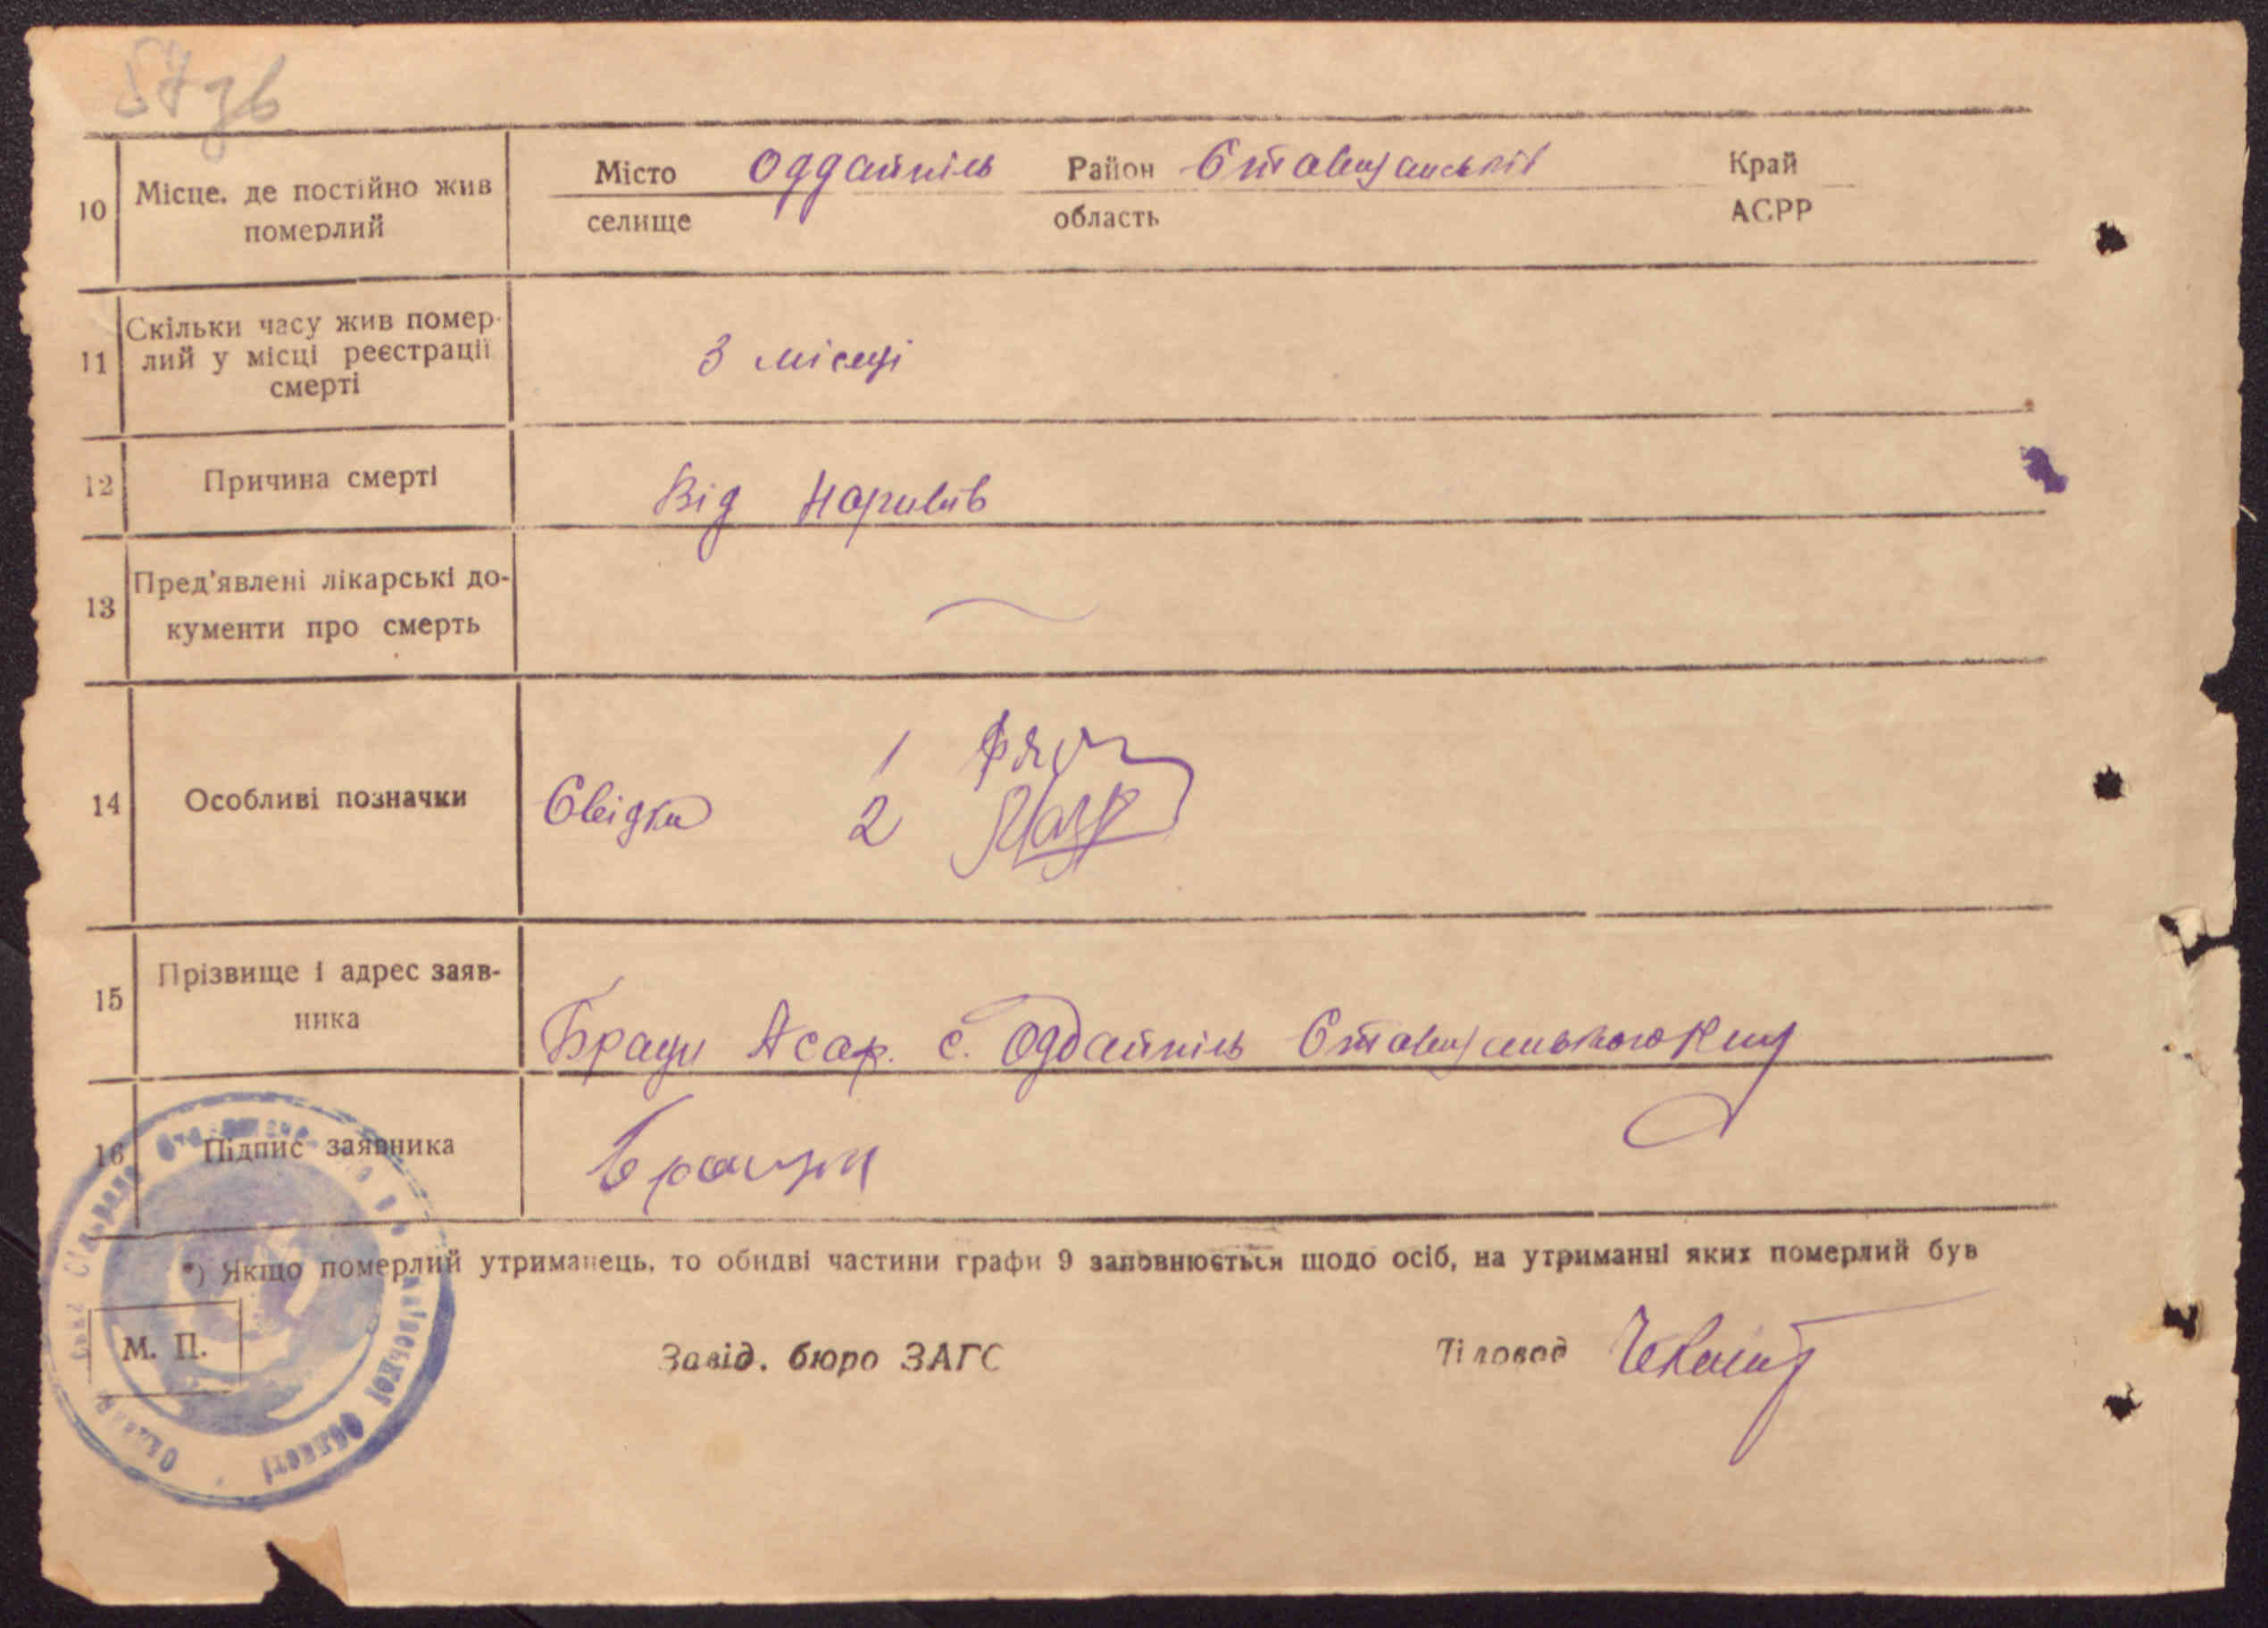 57зв
10 Місце, де постійно жив померлий Місто Оддайпіль Район Ставищанський Край
селище область АСРР
11 Скільки часу жив помер-
лий у місці реєстрації
смерті
3 місяці
12 Причина смерті Від Наривів
13 Пред'явлені лікарські до-
кументи про смерть
14 Особливі позначки Свідки 1
2
15 Прізвище і адрес заяв-
ника
с. Оддайпіль Ставищанського
16 Підпис заявника
*) Якщо померлий утриманець, то обидві частини графи 9 заповнюється щодо осіб, на утриманні яких померлий був
М. П. Завід. бюро ЗАГС Діловод
Київської Області